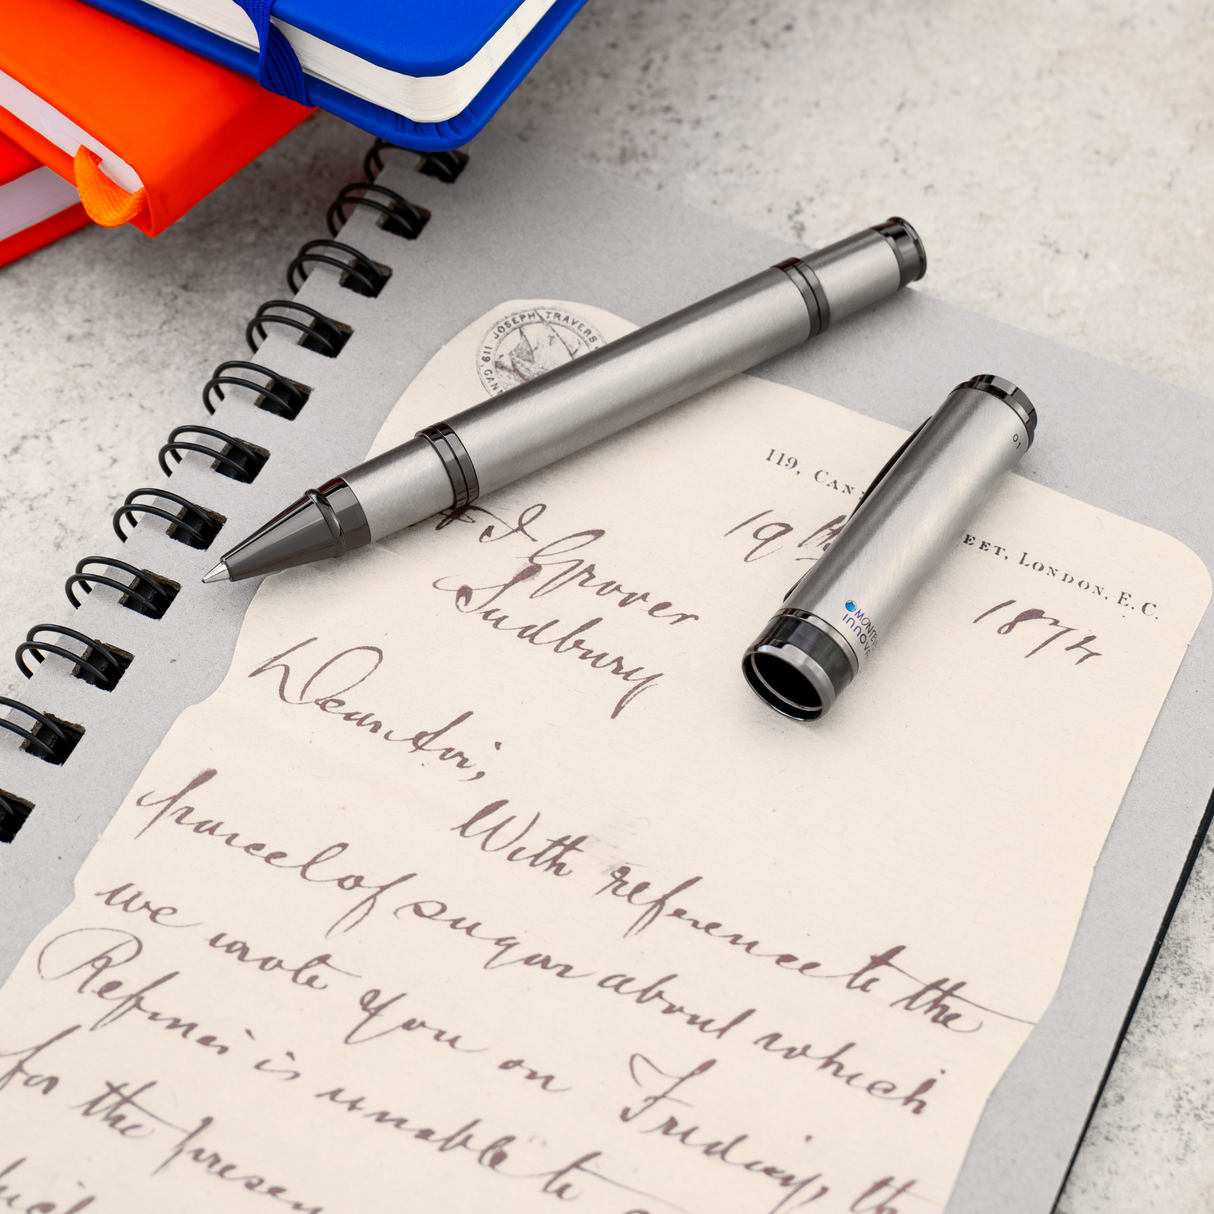 JOSEPH TRAVERS
119, CAN
EET, LONDON, E.C.
19th 1874
J Grover
Sudbury
Dear Sir,
With reference to the
parcel of sugar about which
we wrote you on Friday, the
Refiner is unable to
for the presen
01
MONTE
innova